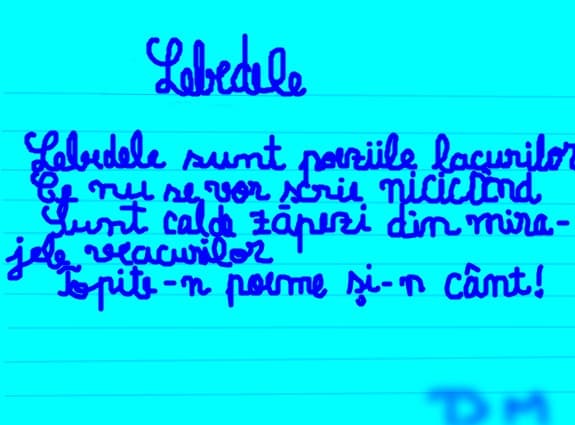 Lebedele
Lebedele sunt poeziile lacurilor
Ce nu se vor scrie nicicând
Sunt calde zăpezi din mira-
jele veacurilor
Topite-n poeme și-n cânt!
DM